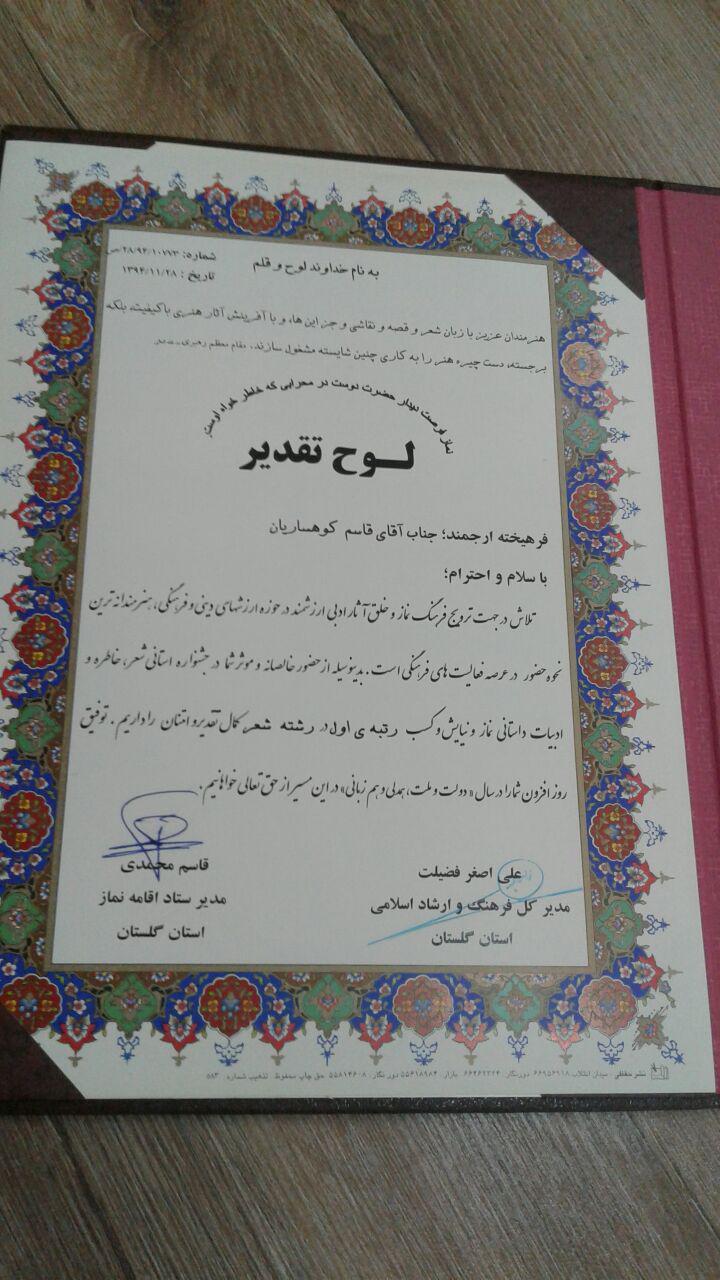 به نام خداوند لوح و قلم
شماره: ۲۸/۹۴/۱۰۷۷۳/ص
تاریخ : ۱۳۹۴/۱۱/۲۸
هنرمندان عزیز با زبان شعر و قصه و نقاشی و جز این ها، و با آفرینش آثار هنری باکیفیت، بلکه
برجسته، دست چیره هنر را به کاری چنین شایسته مشغول سازند. مقام معظم رهبری
نماز فرصت دیدار حضرت دوست در محرابی که خاطر خواه اوست.
لوح تقدیر
فرهیخته ارجمند؛ جناب آقای قاسم کوهساریان
با سلام و احترام؛
تلاش در جهت ترویج فرهنگ نماز و خلق آثار ادبی ارزشمند در حوزه ارزشهای دینی و فرهنگی، هنرمندانه ترین
نحوه حضور در عرصه فعالیت های فرهنگی است. بدینوسیله از حضور خالصانه و موثر شما در جشنواره استانی شعر، خاطره و
ادبیات داستانی نماز و نیایش و کسب رتبه ی اول در رشته شعر کمال تقدیر و امتنان را داریم. توفیق
روز افزون شما را در سال «دولت و ملت، همدلی و هم زبانی» در این مسیر از حق تعالی خواهانیم.
علی اصغر فضیلت
مدیر کل فرهنگ و ارشاد اسلامی
استان گلستان
قاسم محمدی
مدیر ستاد اقامه نماز
استان گلستان
نشر حقیقی میدان انقلاب ۶۶۹۵۶۹۱۸ دورنگار ۶۶۴۶۲۲۲۴ بازار ۵۵۴۱۸۹۸۴ دورنگار ۵۵۸۱۴۶۰۸ حق چاپ محفوظ تذهیب شماره ۵۸۳